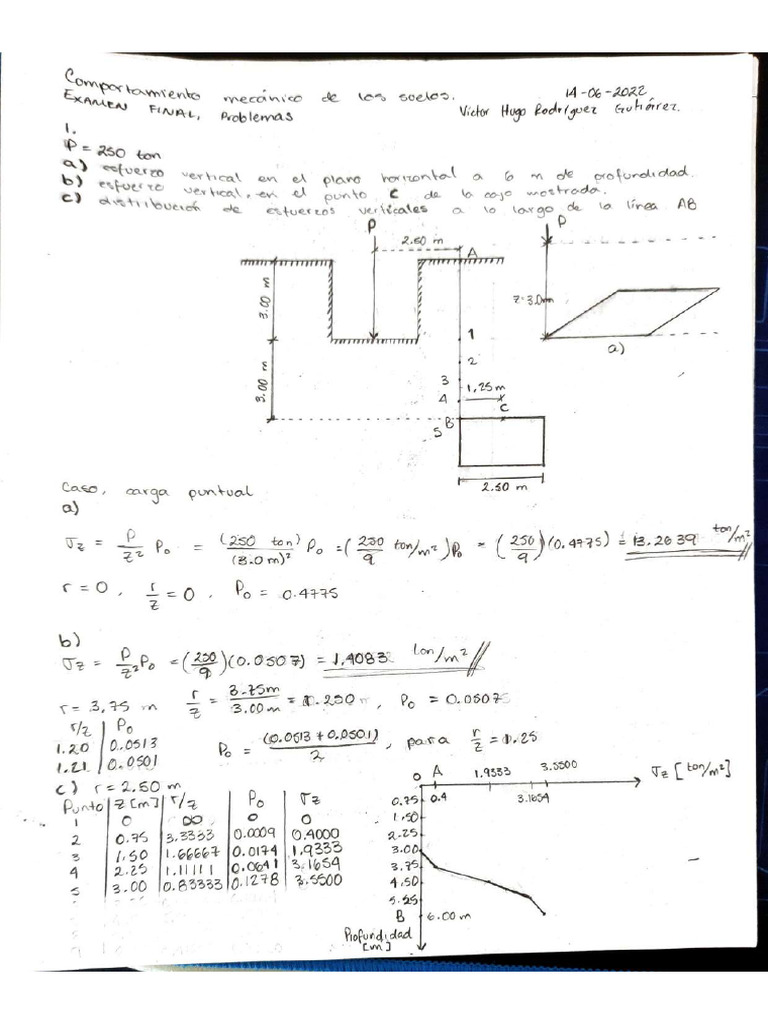 Comportamiento mecánico de los suelos. 14-06-2022
EXAMEN FINAL, Problemas Victor Hugo Rodríguez Gutiérrez.
1.
P = 250 ton
a) esfuerzo vertical en el plano horizontal a 6 m de profundidad.
b) esfuerzo vertical, en el punto C de la caja mostrada.
c) distribución de esfuerzos verticales a lo largo de la línea AB
P
2.50 m
A
P
3.00 m
z=3.0m
a)
1
2
3
4
1,25m
C
3.00 m
B
5
2.50 m
Caso, carga puntual
a)
σz = P/z² P₀ = (250 ton)/(3.0 m)² P₀ = (250/9 ton/m²) P₀ = (250/9)(0.4775) = 13.2639 ton/m²
r = 0, r/z = 0, P₀ = 0.4775
b)
σz = P/z² P₀ = (250/9)(0.0507) = 1.4083 ton/m²
r = 3,75 m r/z = 3.75m/3.00m = 1.250, P₀ = 0.05075
r/z P₀
1.20 0.0513
1.21 0.0501
P₀ = (0.0513+0.0501)/2, para r/z = 1.25
c) r = 2.50 m
Punto z [m] r/z P₀ σz
1 0 ∞ 0 0
2 0.75 3.3333 0.0009 0.4000
3 1.50 1.66667 0.0174 1.9333
4 2.25 1.11111 0.0641 3.1654
5 3.00 0.83333 0.1278 3.5500
0 A 1.9333 3.5500 σz [ton/m²]
0.4 3.1654
0.75
1.50
2.25
3.00
3.75
4.50
5.25
B 6.00 m
Profundidad
[m]